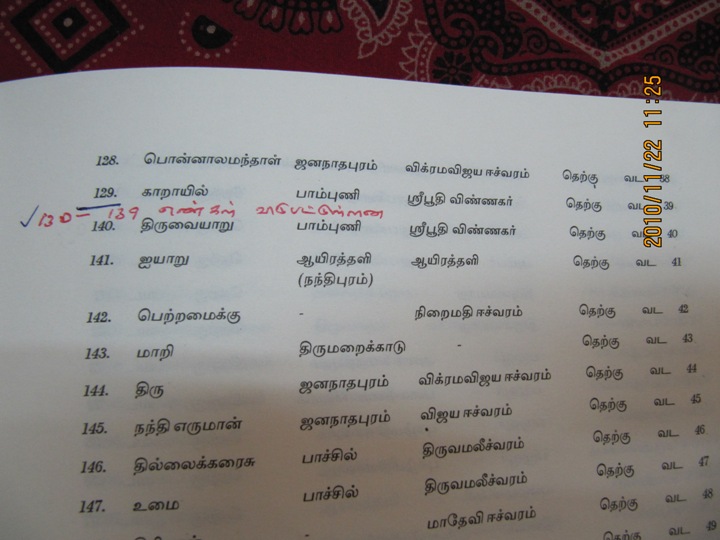 128. பொன்னாலமந்தாள் ஜனநாதபுரம் விக்ரமவிஜய ஈச்வரம் தெற்கு வட 38
129. காறாயில் பாம்புணி ஸ்ரீபூதி விண்ணகர் தெற்கு வட 39
130 - 139 எண்கள்
140. திருவையாறு பாம்புணி ஸ்ரீபூதி விண்ணகர் தெற்கு வட 40
141. ஐயாறு ஆயிரத்தளி ஆயிரத்தளி தெற்கு வட 41
(நந்திபுரம்)
142. பெற்றமைக்கு - நிறைமதி ஈச்வரம் தெற்கு வட 42
143. மாறி திருமறைக்காடு - தெற்கு வட 43
144. திரு ஜனநாதபுரம் விக்ரமவிஜய ஈச்வரம் தெற்கு வட 44
145. நந்தி எருமான் ஜனநாதபுரம் விஜய ஈச்வரம் தெற்கு வட 45
146. தில்லைக்கரைசு பாச்சில் திருவமலீச்வரம் தெற்கு வட 46
147. உமை பாச்சில் திருவமலீச்வரம் தெற்கு வட 47
மாதேவி ஈச்வரம் தெற்கு வட 48
வட 49
2010/11/22 11:25